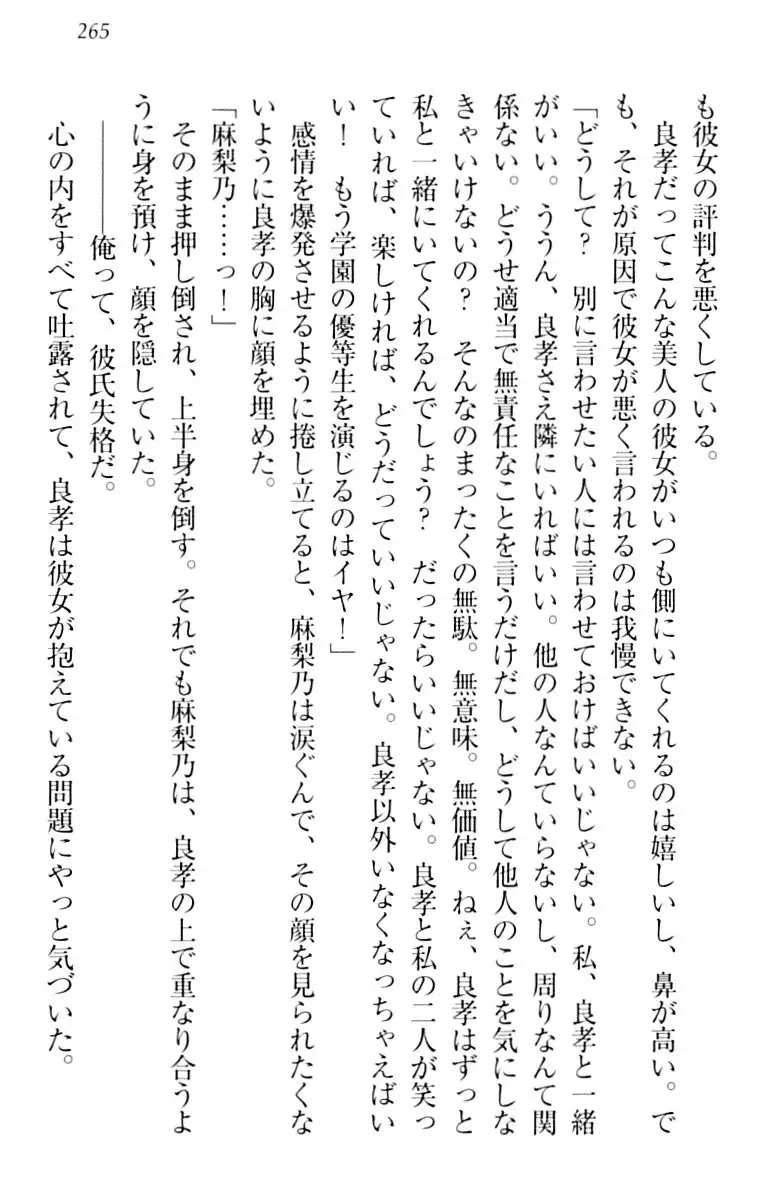 265
も彼女の評判を悪くしている。
　良孝だってこんな美人の彼女がいつも側にいてくれるのは嬉しいし、鼻が高い。で
も、それが原因で彼女が悪く言われるのは我慢できない。
「どうして？　別に言わせたい人には言わせておけばいいじゃない。私、良孝と一緒
がいい。ううん、良孝さえ隣にいればいい。他の人なんていらないし、周りなんて関
係ない。どうせ適当で無責任なことを言うだけだし、どうして他人のことを気にしな
きゃいけないの？　そんなのまったくの無駄。無意味。無価値。ねぇ、良孝はずっと
私と一緒にいてくれるんでしょう？　だったらいいじゃない。良孝と私の二人が笑っ
ていれば、楽しければ、どうだっていいじゃない。良孝以外いなくなっちゃえばい
い！　もう学園の優等生を演じるのはイヤ！」
　感情を爆発させるように捲し立てると、麻梨乃は涙ぐんで、その顔を見られたくな
いように良孝の胸に顔を埋めた。
「麻梨乃……っ！」
　そのまま押し倒され、上半身を倒す。それでも麻梨乃は、良孝の上で重なり合うよ
うに身を預け、顔を隠していた。
　――――俺って、彼氏失格だ。
　心の内をすべて吐露されて、良孝は彼女が抱えている問題にやっと気づいた。